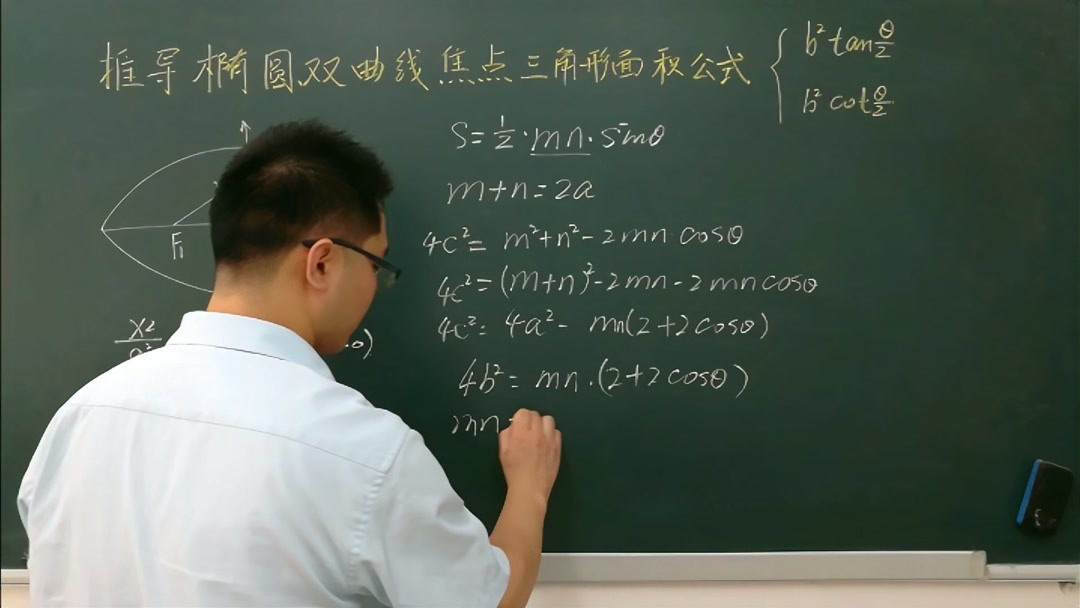 推导椭圆双曲线焦点三角形面积公式 { b²tanθ/2
b²cotθ/2
S=½·mn·sinθ
m+n=2a
4c²=m²+n²-2mn·cosθ
4c²=(m+n)²-2mn-2mncosθ
4c²=4a²-mn(2+2cosθ)
4b²=mn·(2+2cosθ)
mn
F₁
x²